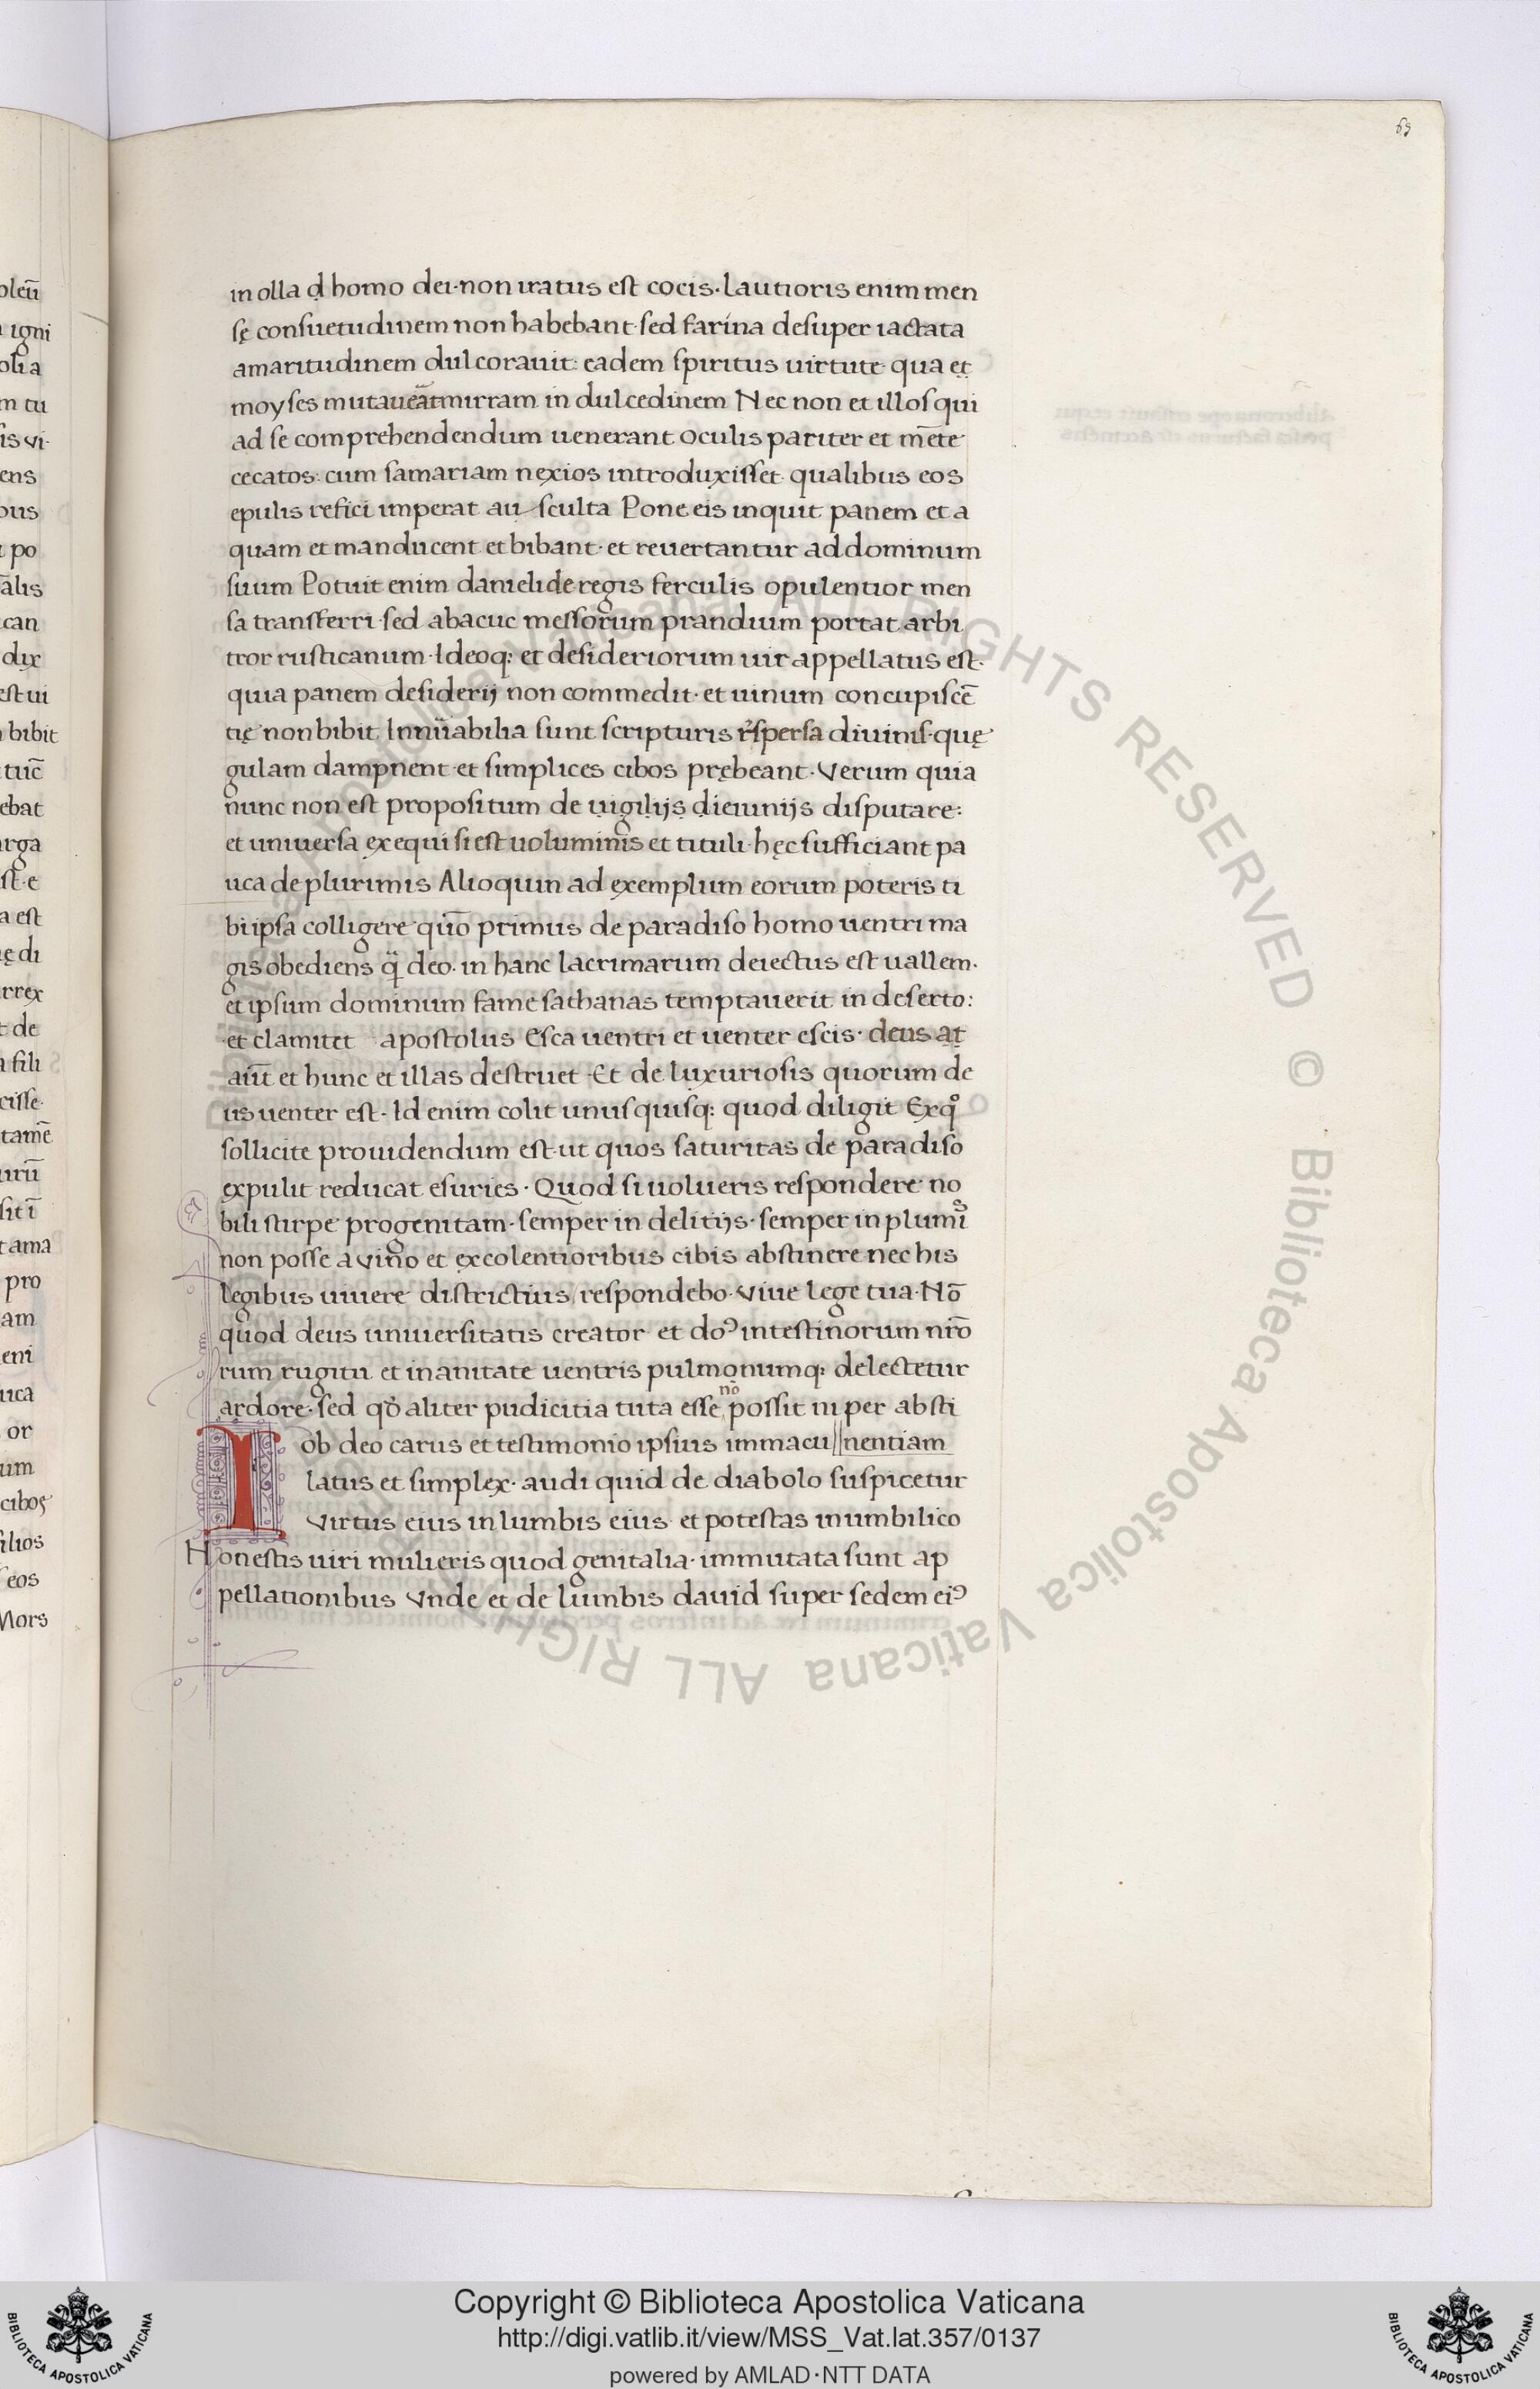 69
in olla ɋ homo dei·non iratus est cocis·lautioris enim men
sę consuetudinem non habebant·sed farina desuper iactata
amaritudinem dulcorauit: eadem spiritus uirtute qua et
moyses mutaueāt mirram in dulcedinem Nec non et illos qui
ad se comprehendendum uenerant oculis pariter et mēte
cecatos: cum samariam nexios introduxisset qualibus eos
epulis refici imperat au sculta Pone eis inquit panem et a
quam et manducent et bibant·et reuertantur ad dominum
suum Potuit enim danieli de regis ferculis opulentior men
sa transferri·sed abacuc messorum prandium portat arbi
tror rusticanum·Ideoq: et desideriorum uir appellatus est·
quia panem desiderij non commedit·et uinum concupiscē
tię non bibit Innūabilia sunt scripturis r̓spersa diuinis·quę
gulam dampnent et simplices cibos prębeant·Verum quia
nunc non est propositum de uigilijs dieiunijs disputare:
et uniuersa exequi si est uoluminis et tituli·hęc sufficiant pa
uca de plurimis Alioquin ad exemplum eorum poteris ti
bi ipsa colligere quō primus de paradiso homo uentri ma
gis obediens q̄ deo·in hanc lacrimarum deiectus est uallem·
et ipsum dominum fame sathanas temptauerit in deserto:
et clamitet apostolus Esca uentri et uenter escis·deus at
aiūt et hunc et illas destruet·Et de luxuriosis quorum de
us uenter est·Id enim colit unusquisq: quod diligit Exqͦ
sollicite prouidendum est·ut quos saturitas de paradiso
expulit reducat esuries·Quod si uolueris respondere no
bili stirpe progenitam·semper in delitijs·semper in plumiˢ
non posse a vino et excolentioribus cibis abstinere nec his
legibus uiuere districtius respondebo·Viue lege tua·Nō
quod deus uniuersitatis creator et doꝰ intestinorum nr̄o
rum rugitu et inanitate uentris pulmonumq: delectetur
ardore·sed qͦ aliter pudicitia tuta esse nō possit ni per absti
Iob deo carus et testimonio ipsius immacu||nentiam
latus et simplex·audi quid de diabolo suspicetur
Virtus eius in lumbis eius et potestas in umbilico
Honestis uiri mulieris quod genitalia·immutata sunt ap
pellationibus Vnde et de lumbis dauid super sedem eiꝰ
Biblioteca Apostolica Vaticana ALL RIGHTS RESERVED ©
Copyright © Biblioteca Apostolica Vaticana
http://digi.vatlib.it/view/MSS_Vat.lat.357/0137
powered by AMLAD·NTT DATA
BIBLIOTECA APOSTOLICA VATICANA
BIBLIOTECA APOSTOLICA VATICANA